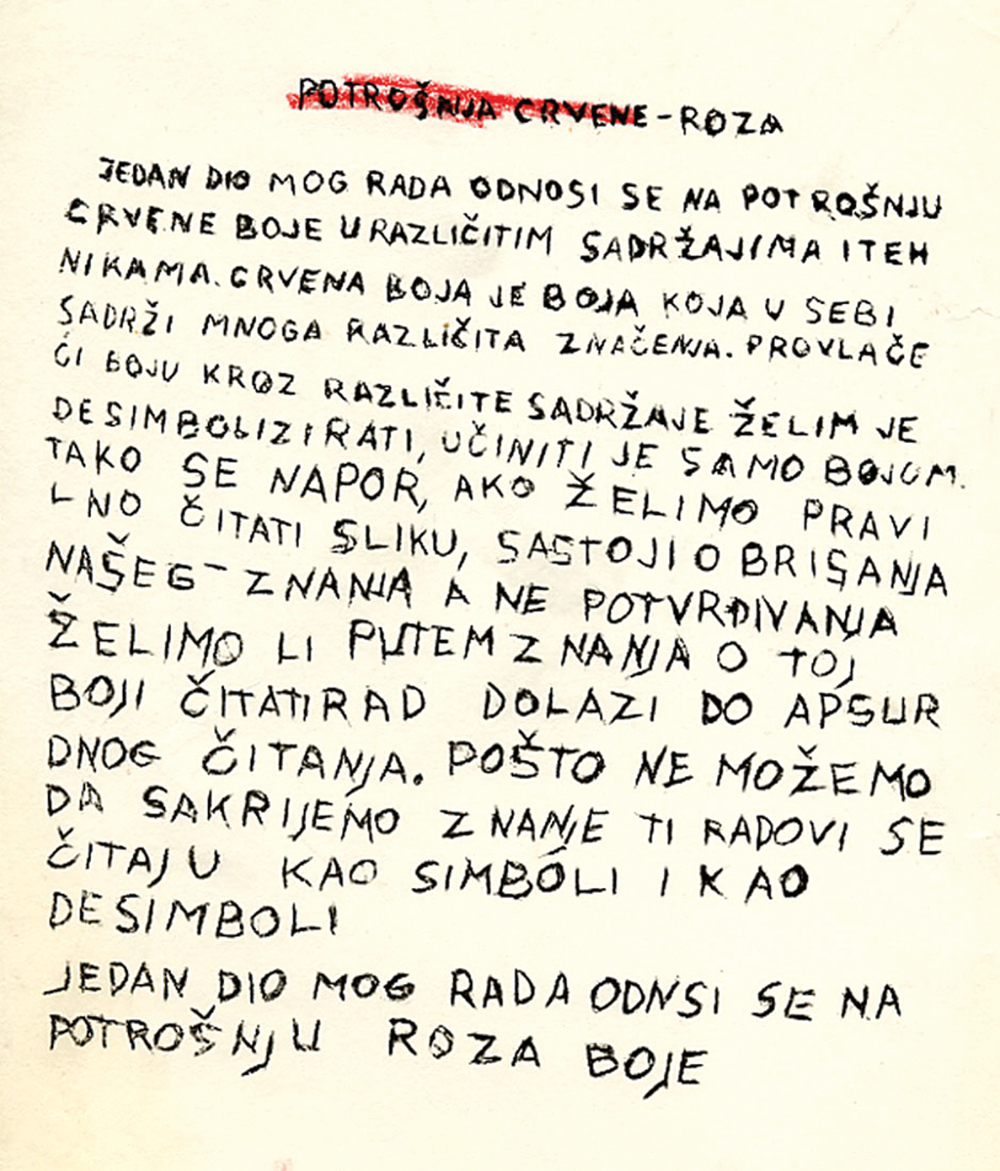 POTROŠNJA CRVENE-ROZA
JEDAN DIO MOG RADA ODNOSI SE NA POTROŠNJU
CRVENE BOJE U RAZLIČITIM SADRŽAJIMA I TEH
NIKAMA. CRVENA BOJA JE BOJA KOJA U SEBI
SADRŽI MNOGA RAZLIČITA ZNAČENJA. PROVLAČE
ĆI BOJU KROZ RAZLIČITE SADRŽAJE ŽELIM JE
DESIMBOLIZIRATI, UČINITI JE SAMO BOJOM.
TAKO SE NAPOR, AKO ŽELIMO PRAVI
LNO ČITATI SLIKU, SASTOJI O BRISANJA
NAŠEG ZNANJA A NE POTVRĐIVANJA
ŽELIMO LI PUTEM ZNANJA O TOJ
BOJI ČITATI RAD DOLAZI DO APSUR
DNOG ČITANJA. POŠTO NE MOŽEMO
DA SAKRIJEMO ZNANJE TI RADOVI SE
ČITAJU KAO SIMBOLI I KAO
DESIMBOLI
JEDAN DIO MOG RADA ODNSI SE NA
POTROŠNJU ROZA BOJE